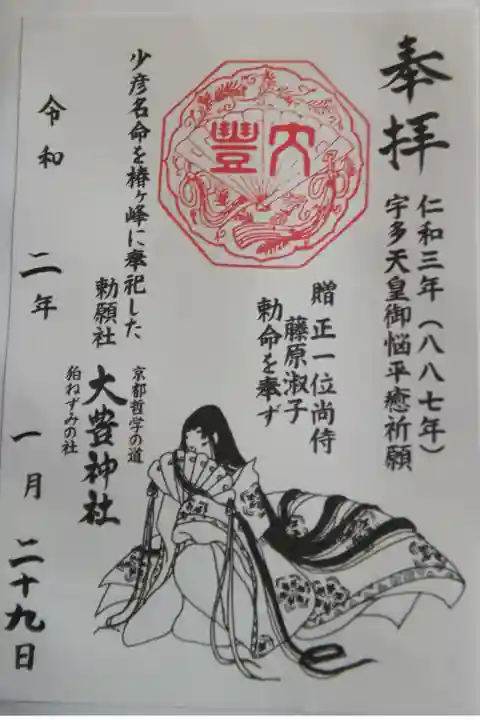 奉拝
仁和三年(八八七年)
宇多天皇御悩平癒祈願
贈 正一位尚侍
藤原淑子
勅命を奉ず
大豊
少彦名命を椿ヶ峰に奉祀した
勅願社
京都哲学の道
大豊神社
狛ねずみの社
令和 二年 一月 二十九日